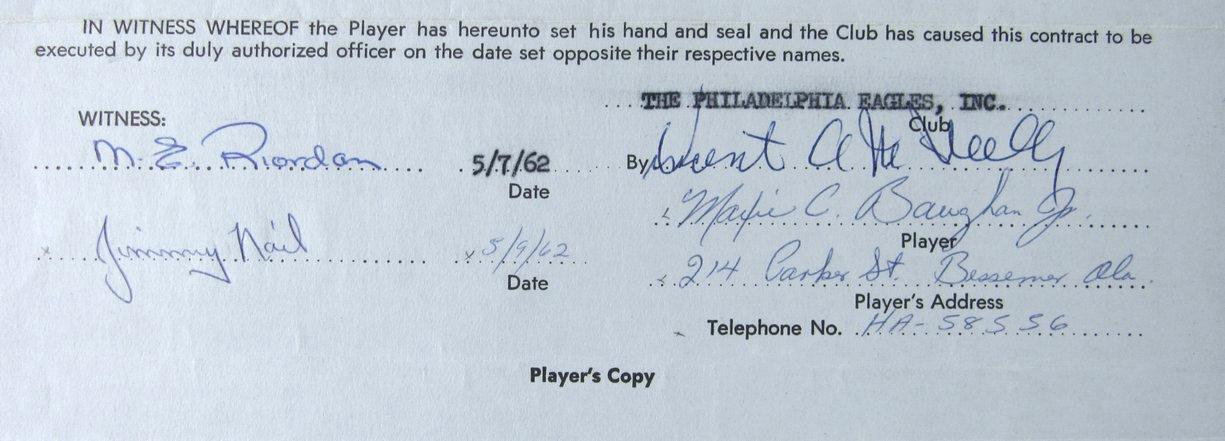 IN WITNESS WHEREOF the Player has hereunto set his hand and seal and the Club has caused this contract to be
executed by its duly authorized officer on the date set opposite their respective names.
THE PHILADELPHIA EAGLES, INC.
WITNESS:
Club
M. E. Riordan 5/7/62 By Vincent A McNally
Date
Maxie C. Baughan Jr.
Player
Jimmy Nail x 5/9/62
Date
214 Parker St. Bessemer Ala
Player's Address
Telephone No. HA-58556
Player's Copy